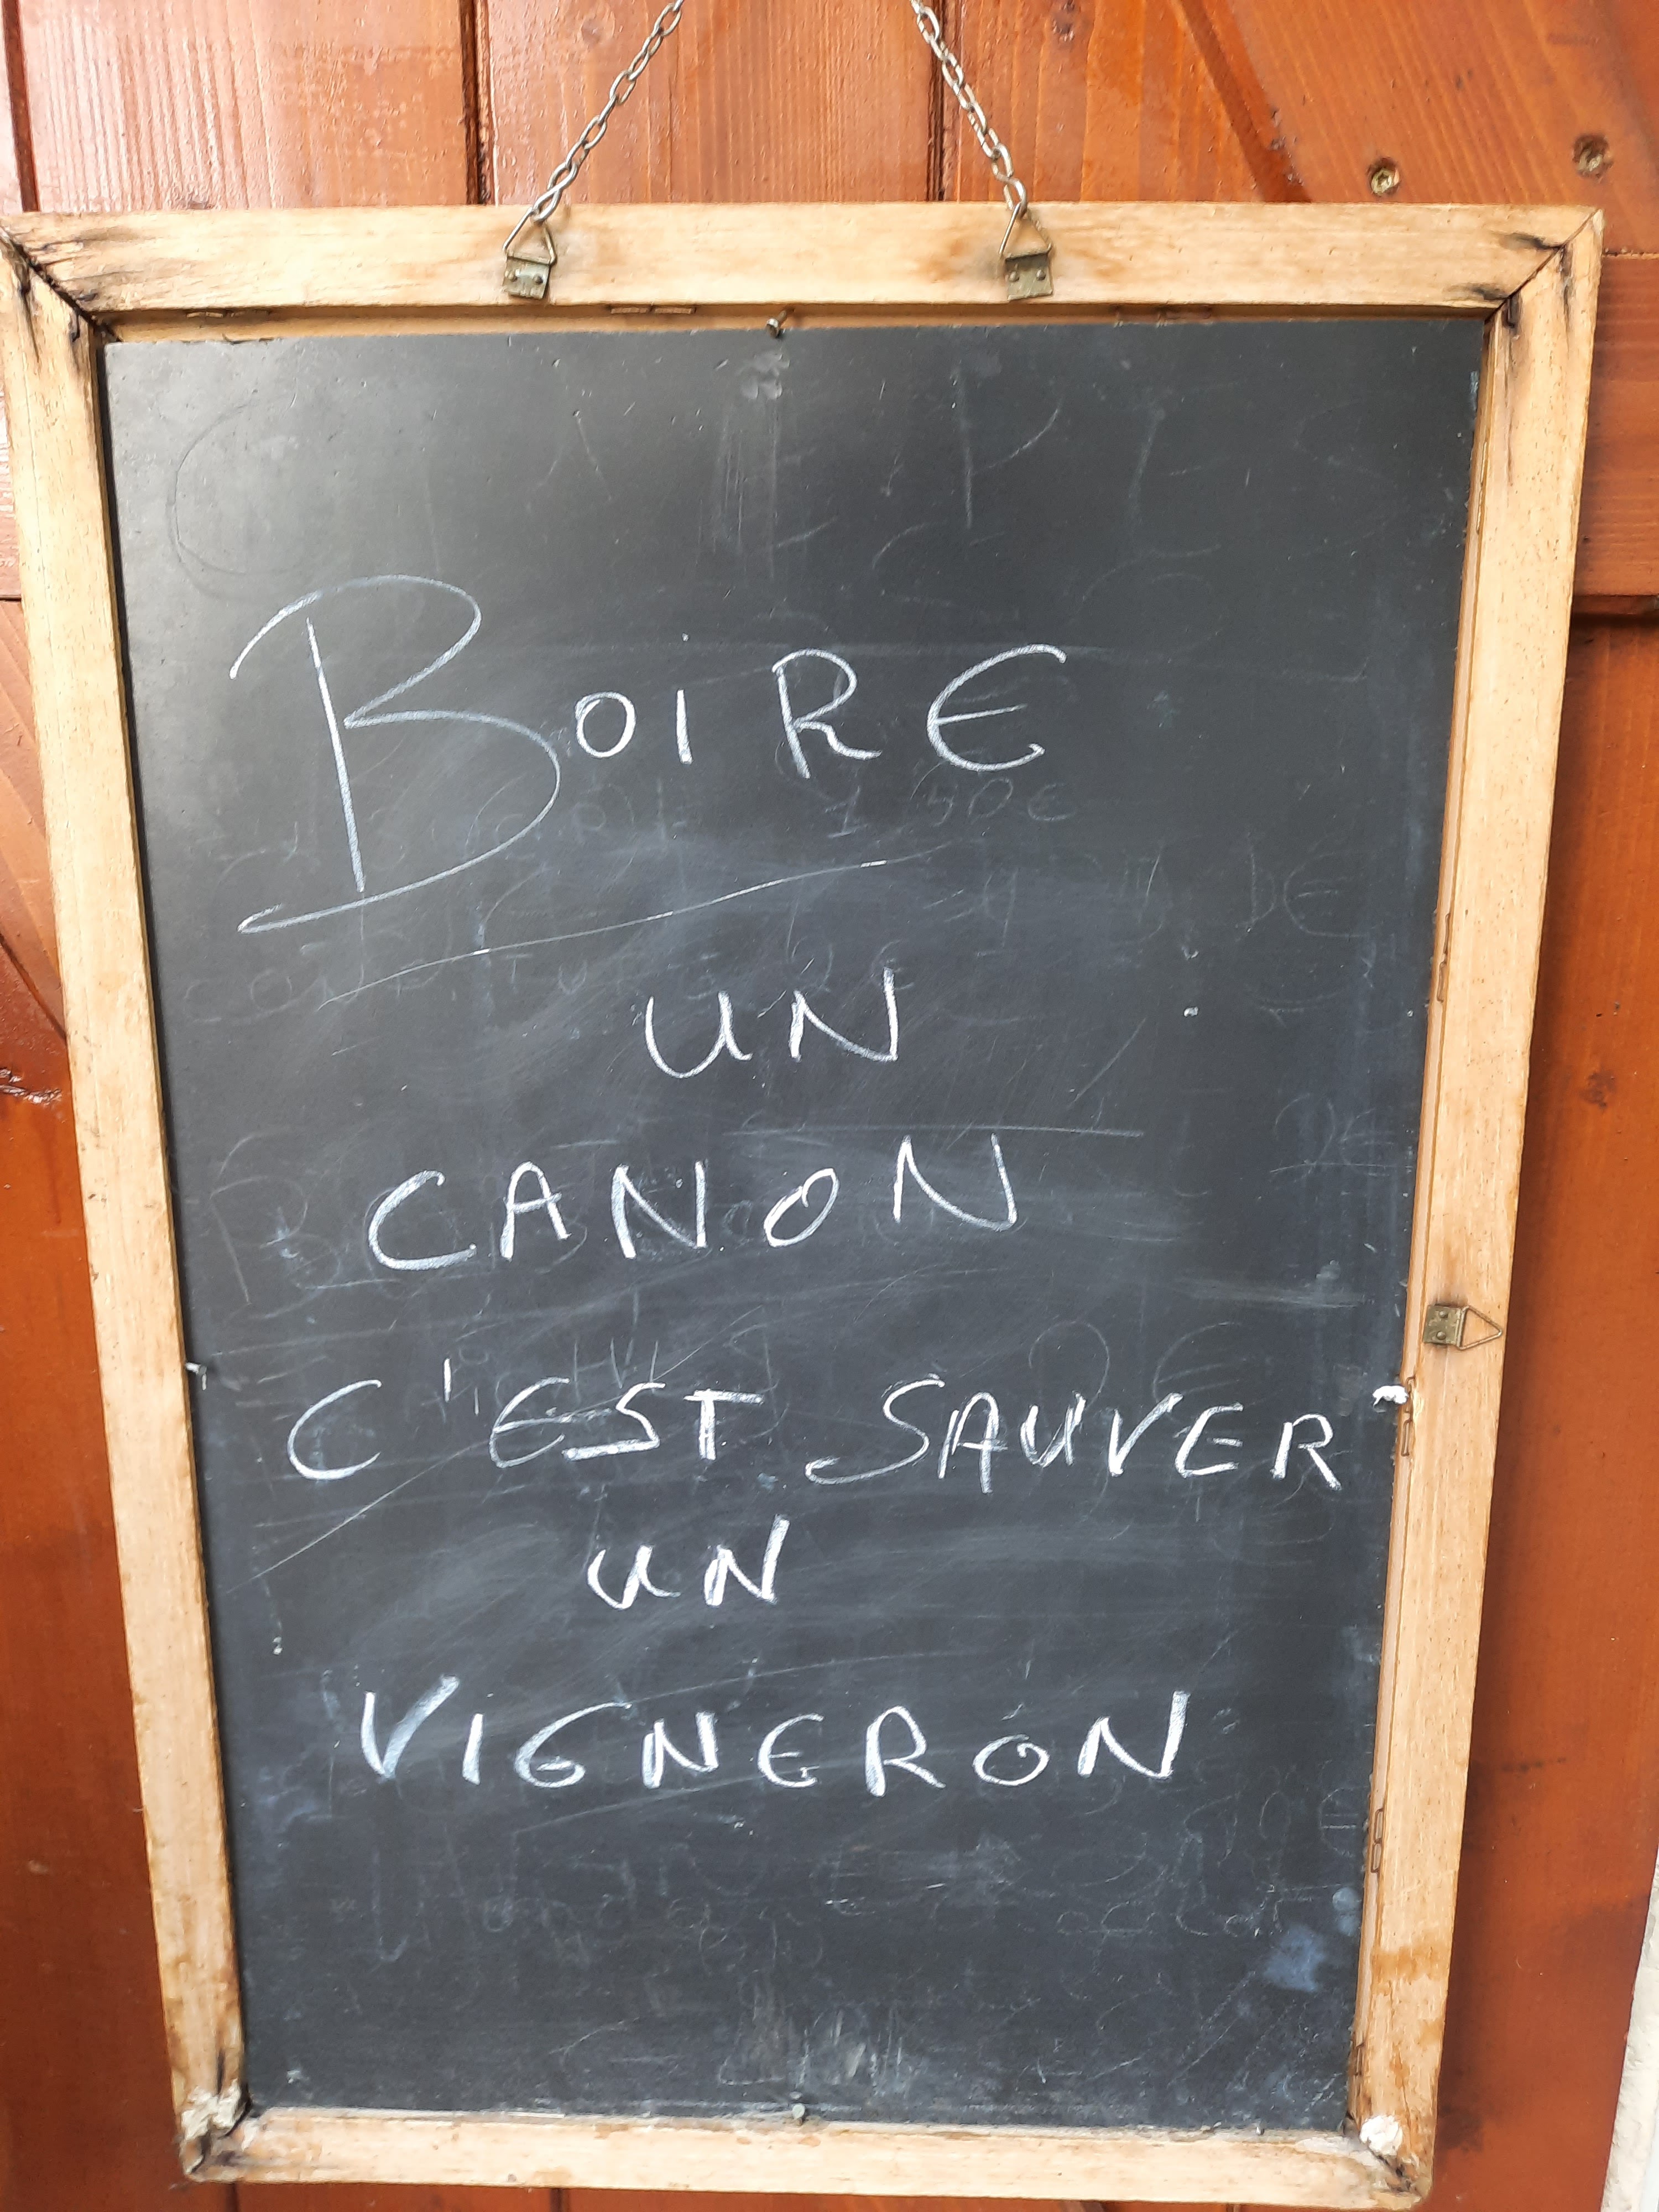 BOIRE
UN
CANON
C'EST SAUVER
UN
VIGNERON